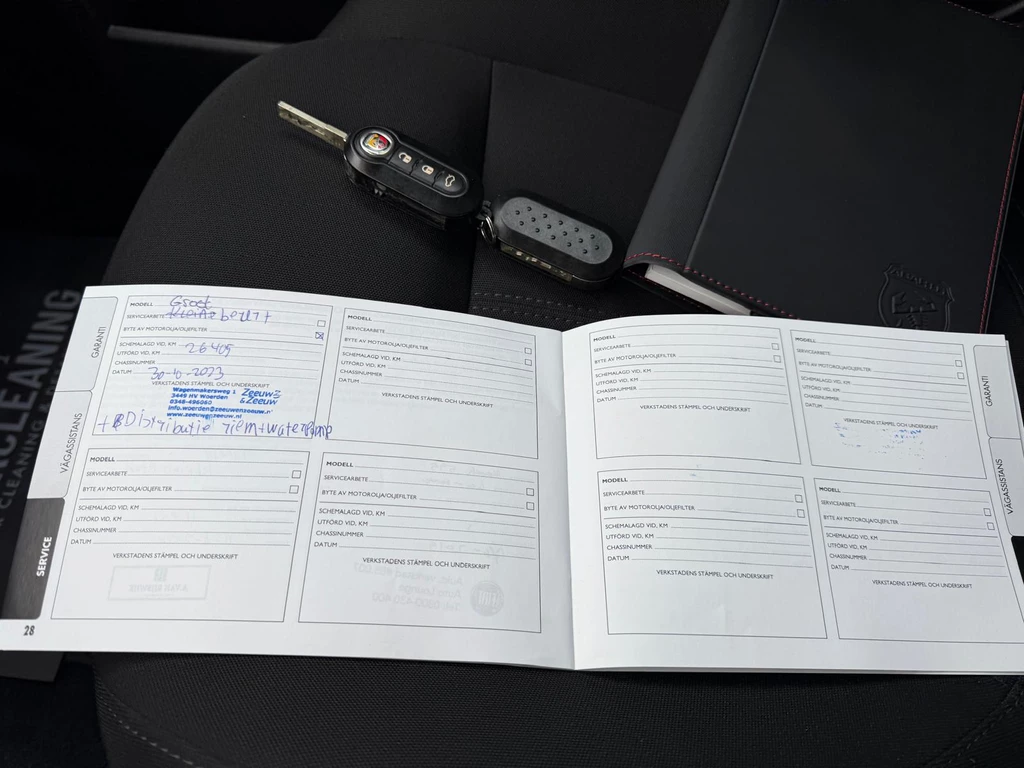 GARANTI
VÄGASSISTANS
SERVICE
28
MODELL Groot
SERVICEARBETE
BYTE AV MOTOROLJA/OLJEFILTER
SCHEMALAGD VID, KM 26409
UTFÖRD VID, KM
CHASSINUMMER
DATUM 30-10-2023
VERKSTADENS STÄMPEL OCH UNDERSKRIFT
Wagenmakersweg 1
3449 HV Woerden
0348-496060
info.woerden@zeeuwenzeeuw.nl
www.zeeuwenzeeuw.nl
Zeeuw
& Zeeuw
Distributie riem + waterpomp
MODELL
SERVICEARBETE
BYTE AV MOTOROLJA/OLJEFILTER
SCHEMALAGD VID, KM
UTFÖRD VID, KM
CHASSINUMMER
DATUM
VERKSTADENS STÄMPEL OCH UNDERSKRIFT
MODELL
SERVICEARBETE
BYTE AV MOTOROLJA/OLJEFILTER
SCHEMALAGD VID, KM
UTFÖRD VID, KM
CHASSINUMMER
DATUM
VERKSTADENS STÄMPEL OCH UNDERSKRIFT
MODELL
SERVICEARBETE
BYTE AV MOTOROLJA/OLJEFILTER
SCHEMALAGD VID, KM
UTFÖRD VID, KM
CHASSINUMMER
DATUM
VERKSTADENS STÄMPEL OCH UNDERSKRIFT
MODELL
SERVICEARBETE
BYTE AV MOTOROLJA/OLJEFILTER
SCHEMALAGD VID, KM
UTFÖRD VID, KM
CHASSINUMMER
DATUM
VERKSTADENS STÄMPEL OCH UNDERSKRIFT
MODELL
SERVICEARBETE
BYTE AV MOTOROLJA/OLJEFILTER
SCHEMALAGD VID, KM
UTFÖRD VID, KM
CHASSINUMMER
DATUM
VERKSTADENS STÄMPEL OCH UNDERSKRIFT
MODELL
SERVICEARBETE
BYTE AV MOTOROLJA/OLJEFILTER
SCHEMALAGD VID, KM
UTFÖRD VID, KM
CHASSINUMMER
DATUM
VERKSTADENS STÄMPEL OCH UNDERSKRIFT
MODELL
SERVICEARBETE
BYTE AV MOTOROLJA/OLJEFILTER
SCHEMALAGD VID, KM
UTFÖRD VID, KM
CHASSINUMMER
DATUM
VERKSTADENS STÄMPEL OCH UNDERSKRIFT
GARANTI
VÄGASSISTANS
CLEANING
CLEANING &